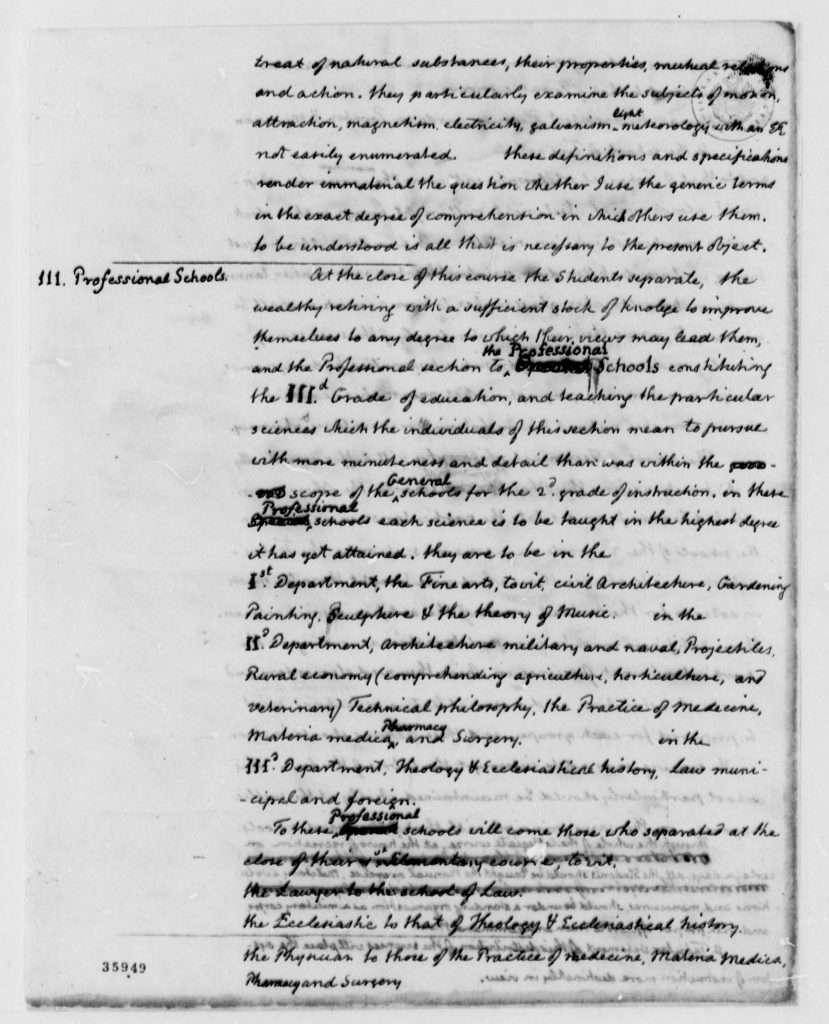 treat of natural substances, their properties, mutual relations
and action. they particularly examine the subjects of motion,
attraction, magnetism, electricity, galvanism, light meteorology with an &c
not easily enumerated. these definitions and specifications
render immaterial the question whether I use the generic terms
in the exact degree of comprehension in which others use them.
to be understood is all that is necessary to the present object.
III. Professional Schools. At the close of this course the Students separate, the
wealthy retiring with a sufficient stock of knolege to improve
themselves to any degree to which their views may lead them,
and the Professional section to the Professional Schools constituting
the III.d Grade of education, and teaching the particular
sciences which the individuals of this section mean to pursue
with more minuteness and detail than was within the
scope of the General schools for the 2d. grade of instruction. in these
Professional schools each science is to be taught in the highest degree
it has yet attained. they are to be in the
Ist. Department, the Fine arts, to wit, civil Architecture, Gardening
Painting, Sculpture & the theory of Music. in the
IId. Department, Architecture military and naval, Projectiles,
Rural economy (comprehending agriculture, horticulture, and
veterinary) Technical philosophy, the Practice of Medecine,
Materia medica, Pharmacy and Surgery. in the
IIId. Department, Theology & Ecclesiastical history, Law muni-
-cipal and foreign.
To these Professional schools will come those who separated at the
close of their 1st Elementary course to wit.
the Lawyer to the school of Law.
the Ecclesiastic to that of Theology & Ecclesiastical history.
the Physician to those of the Practice of medecine, Materia Medica,
Pharmacy and Surgery
35949